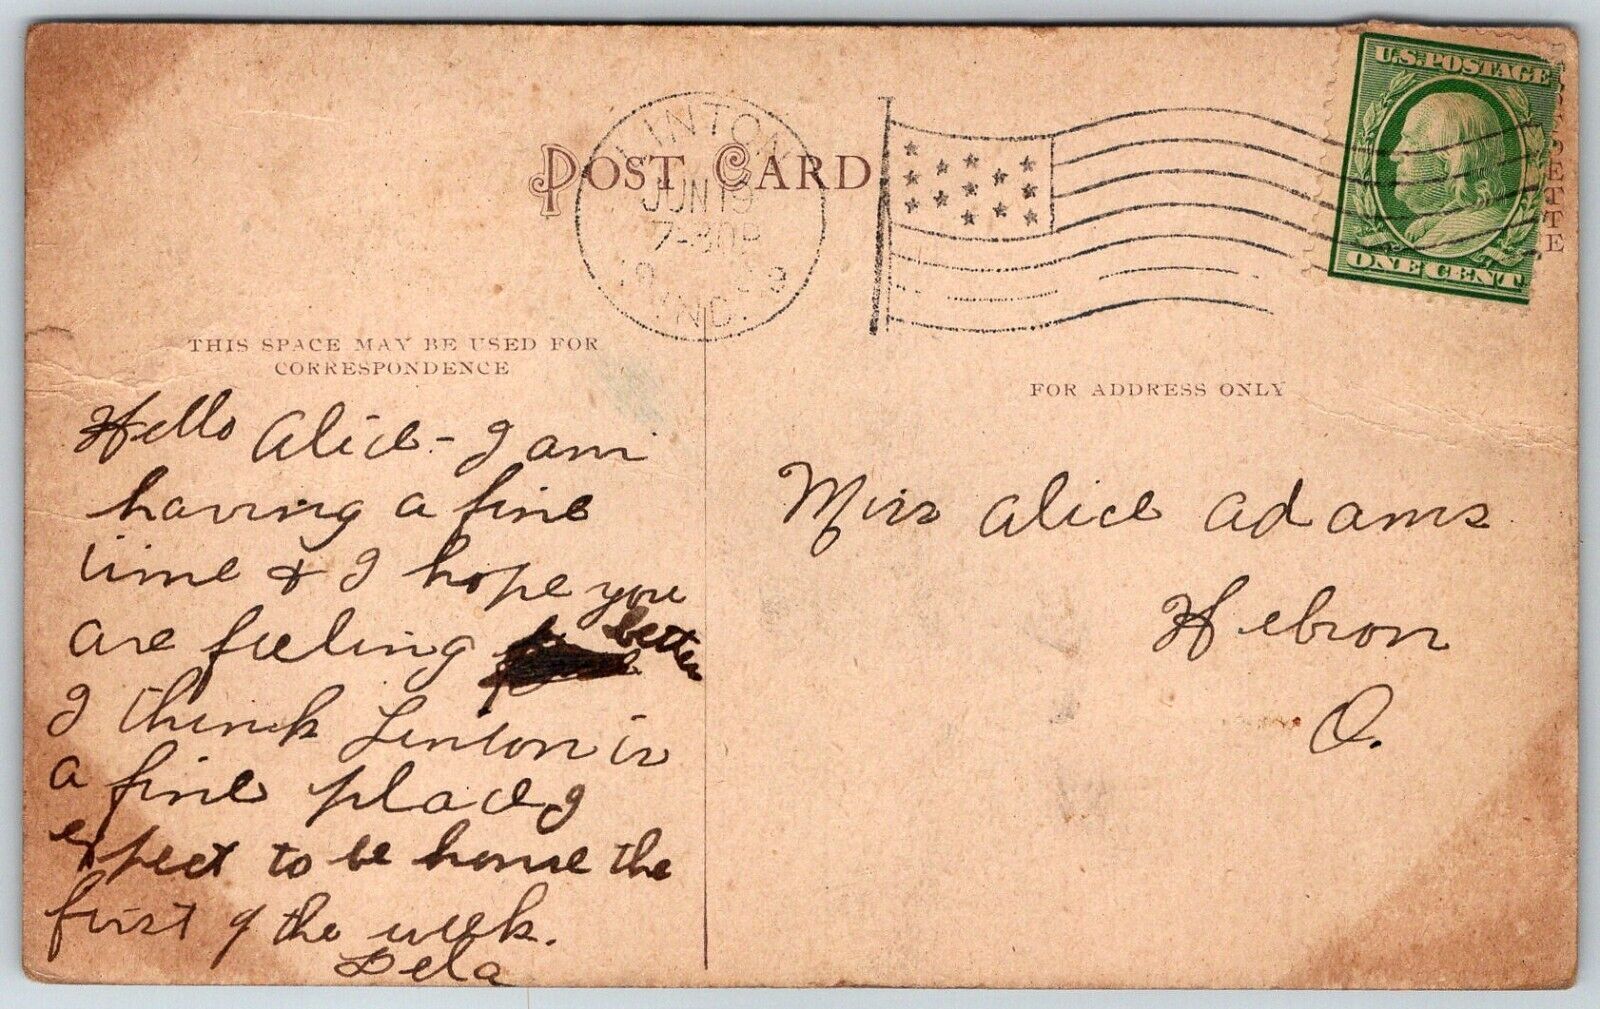 POST CARD
LINTON
JUN 19
7-30P
IND.
U.S. POSTAGE
ONE CENT
THIS SPACE MAY BE USED FOR
CORRESPONDENCE
FOR ADDRESS ONLY
Hello Alice - I am
having a fine
time & I hope you
are feeling better
I think Linton is
a fine place I
expect to be home the
first of the week.
Dela
Miss Alice Adams
Hebron
O.